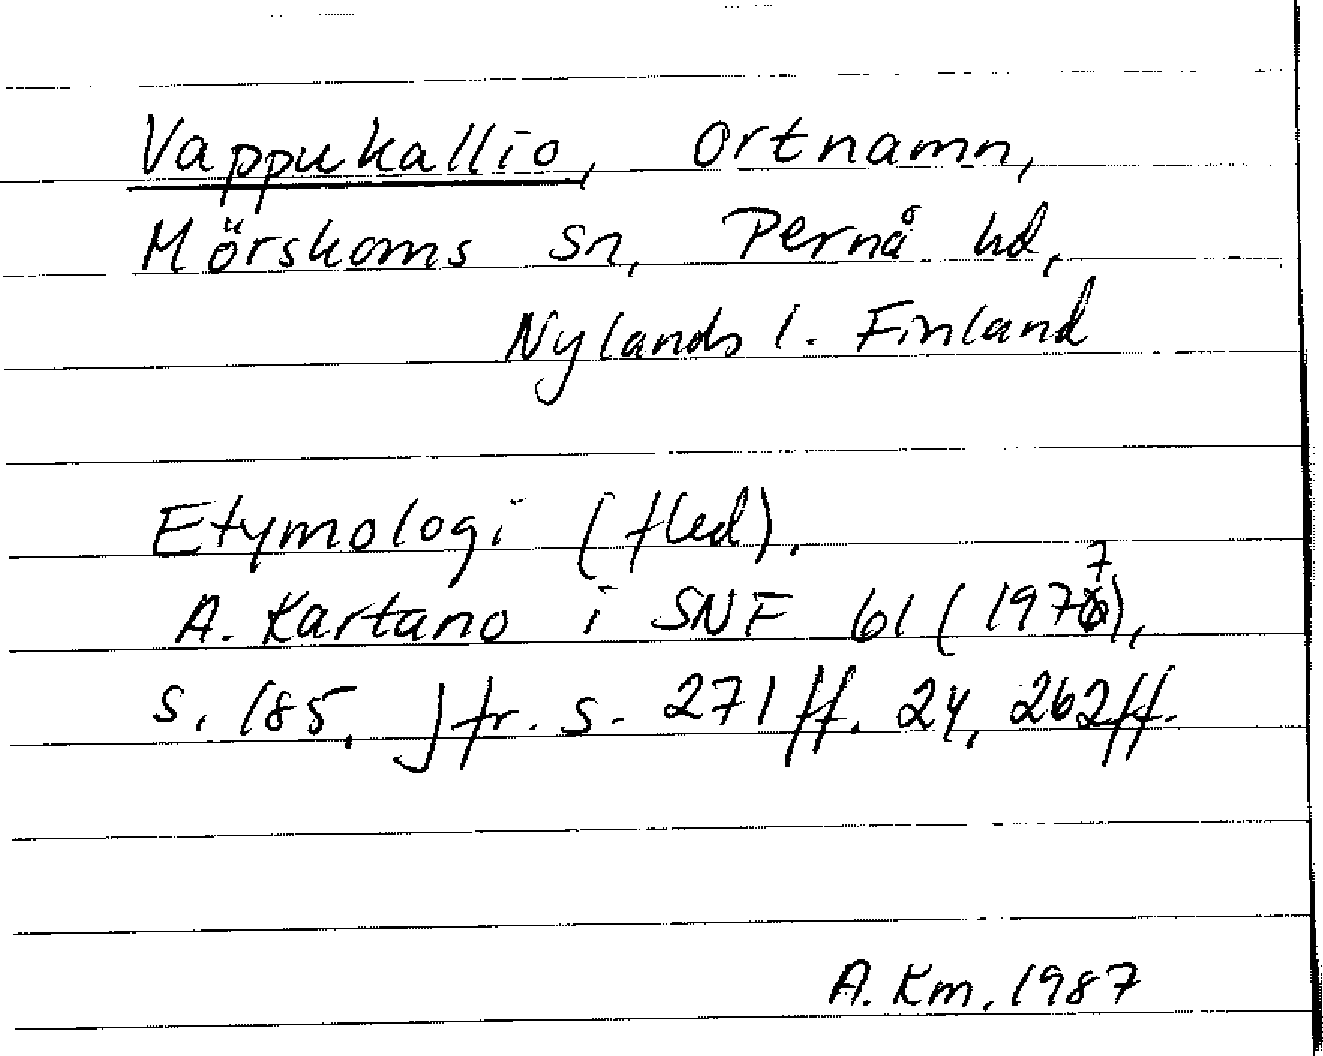 Vappukallio, ortnamn,
Mörskoms sn, Pernå hd,
Nylands l. Finland
Etymologi (fled).
A. Kartano i SNF 61 (1977),
s. 185, jfr. s. 271 ff. 24, 262 ff.
A. Km. 1987